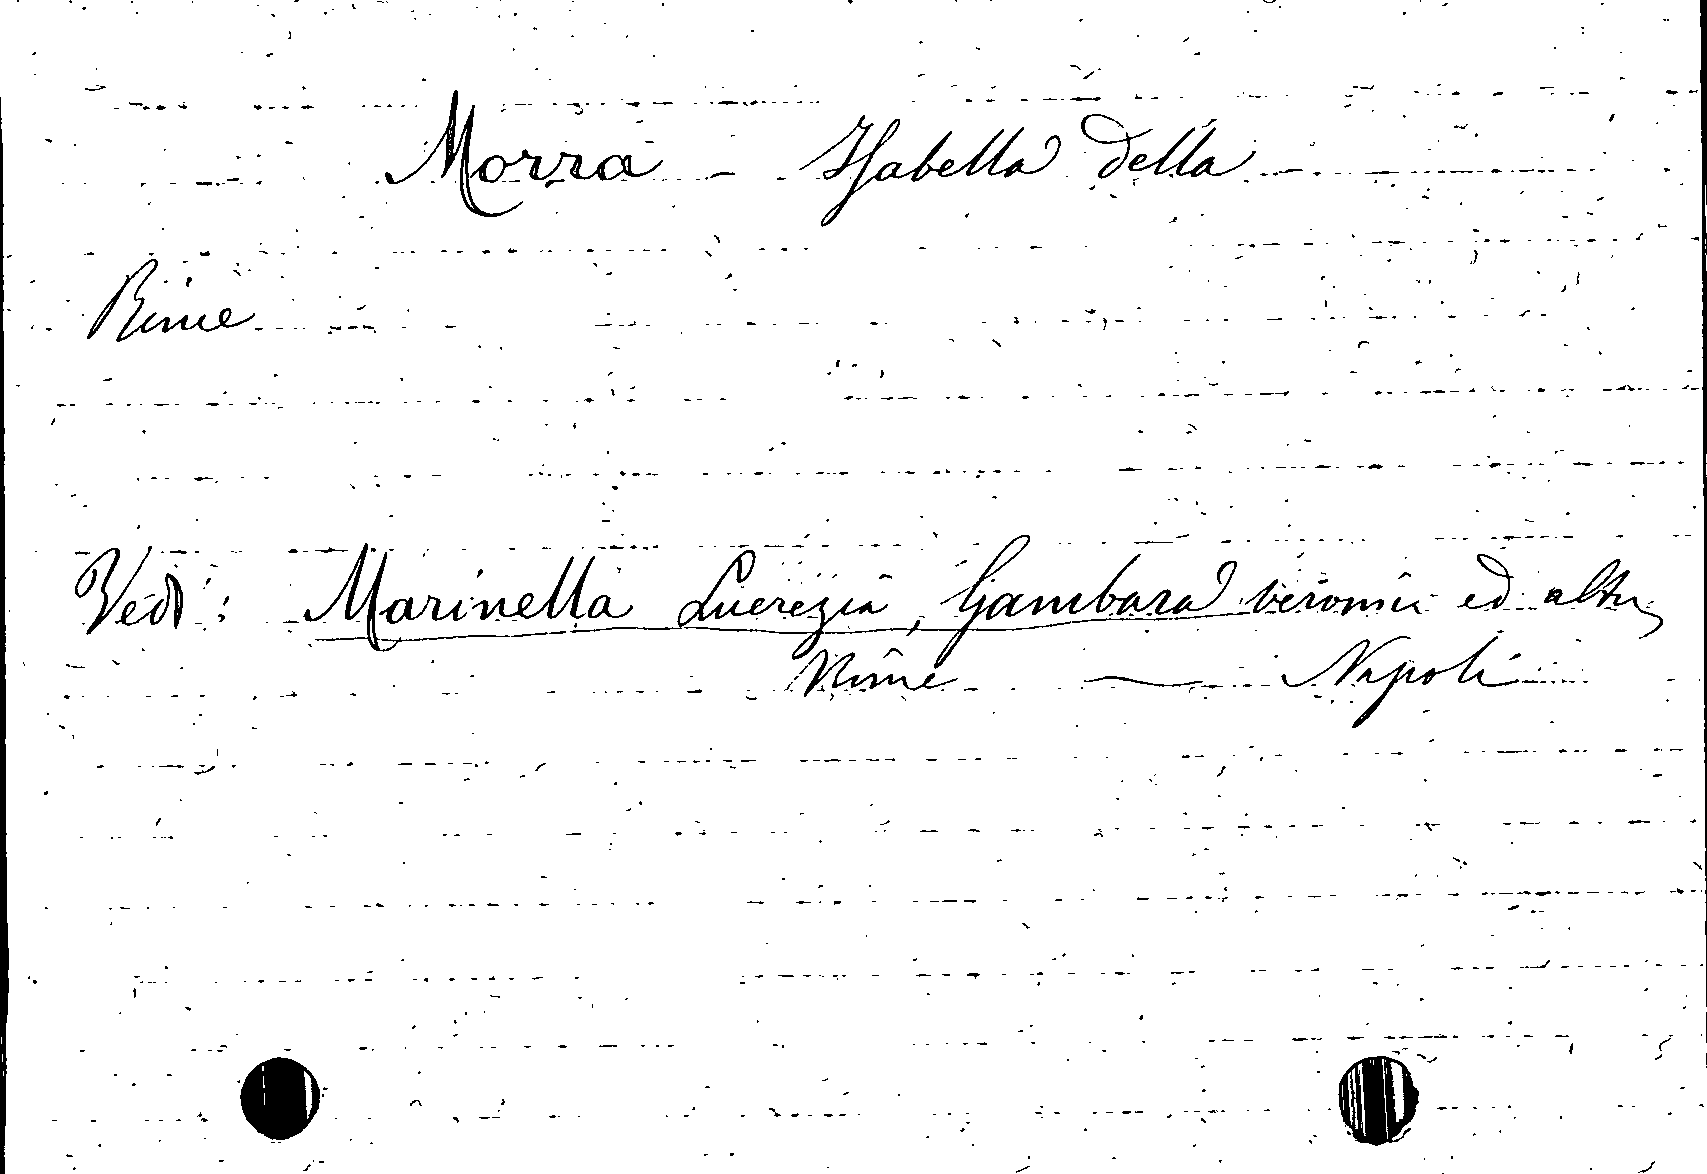 Morra - Isabella della
Rime
Vedi: Marinella Lucrezia, Gambara Veronica ed altre,
Rime — Napoli